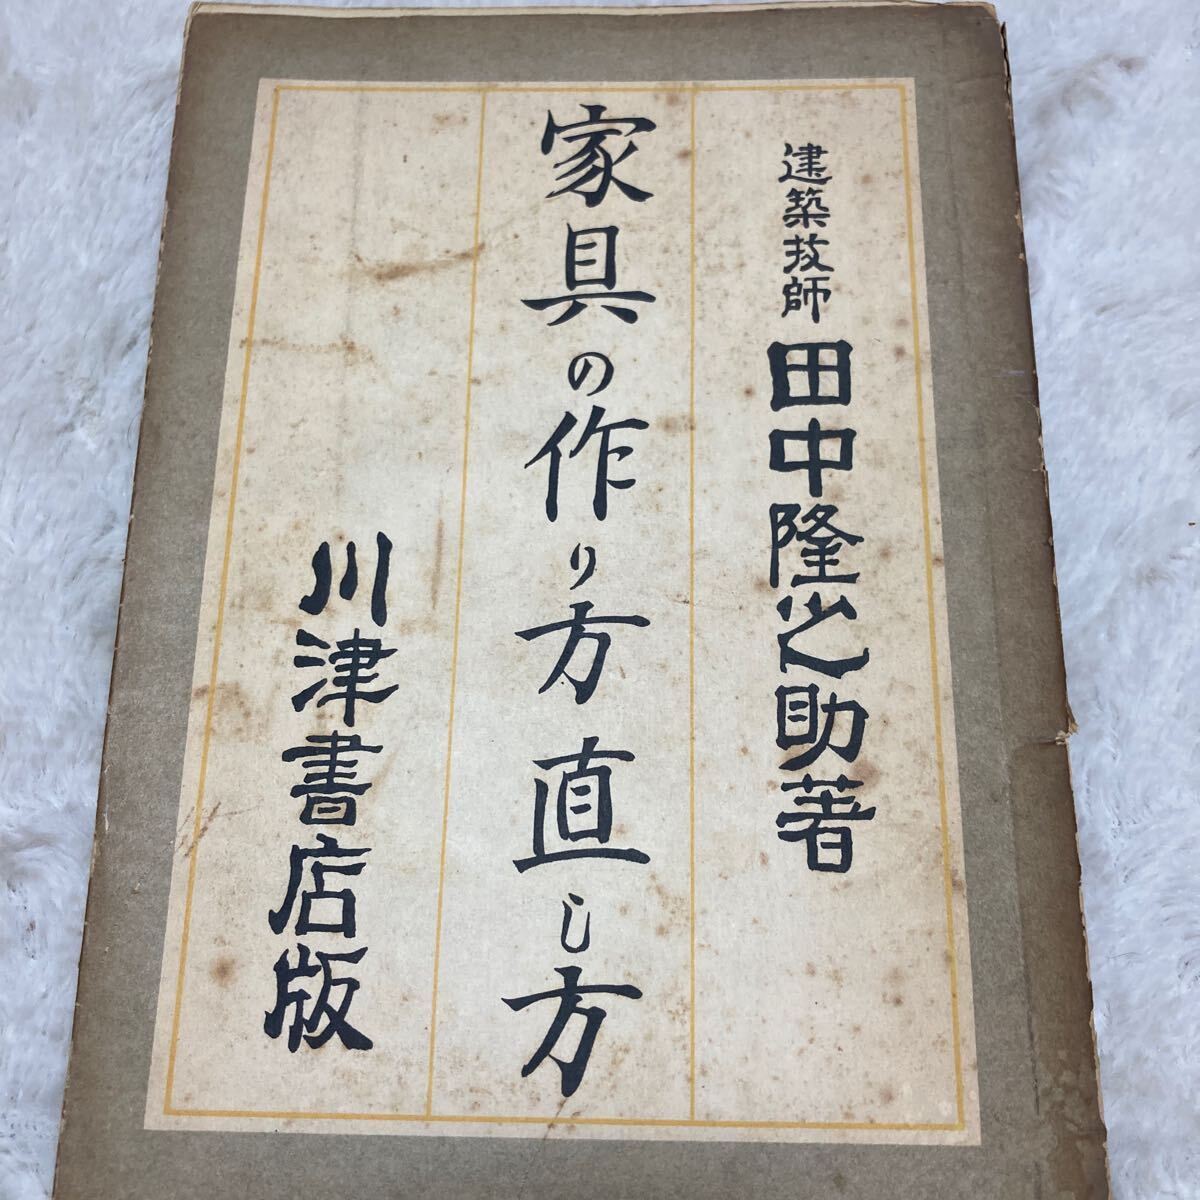 建築技師 田中隆之助著
家具の作り方直し方
川津書店版